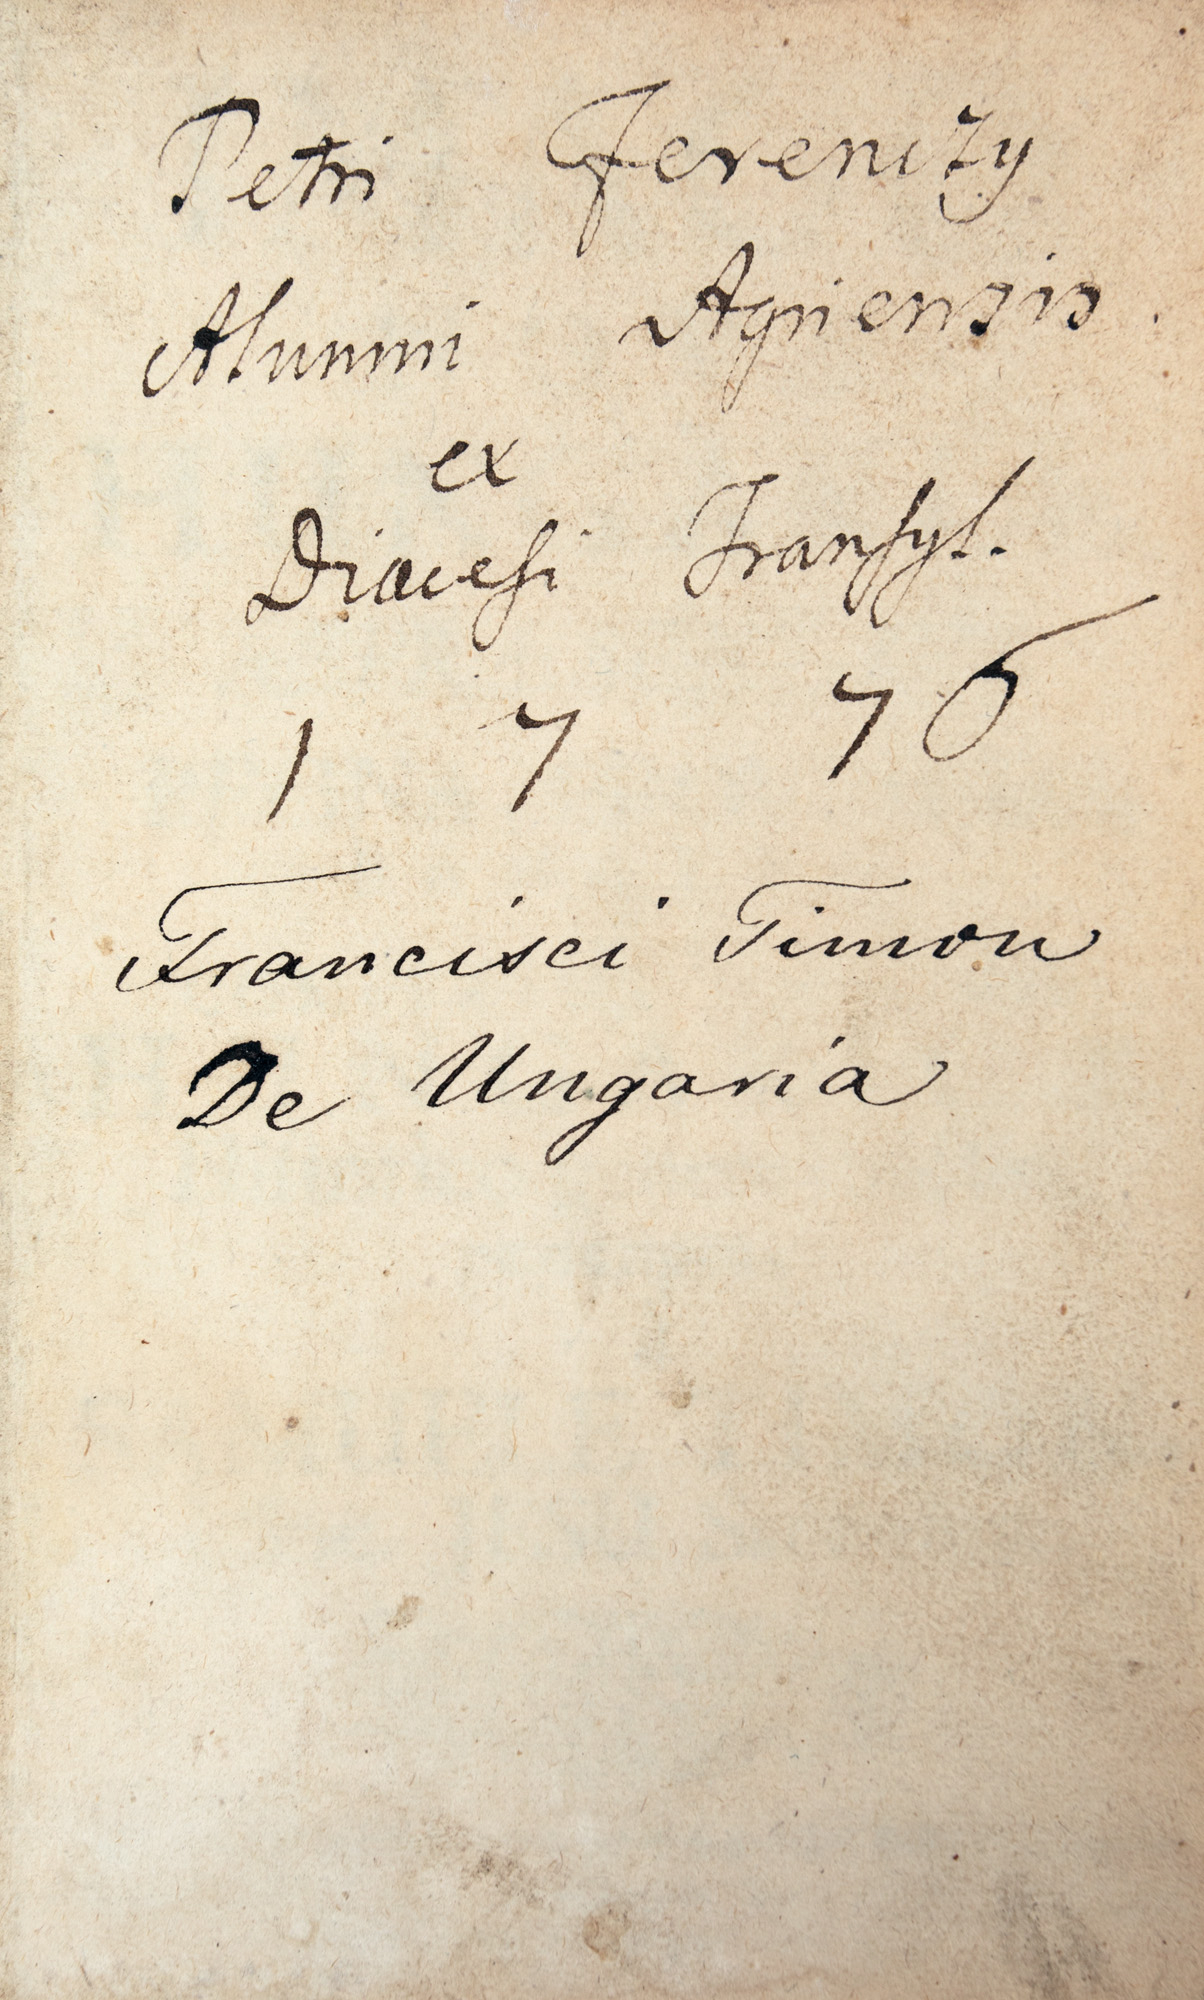 Petri Ferenczy
Alumni Agriensis.
ex
Diocesi Transyl.
1 7 7 6
Francisci Timon
De Ungaria